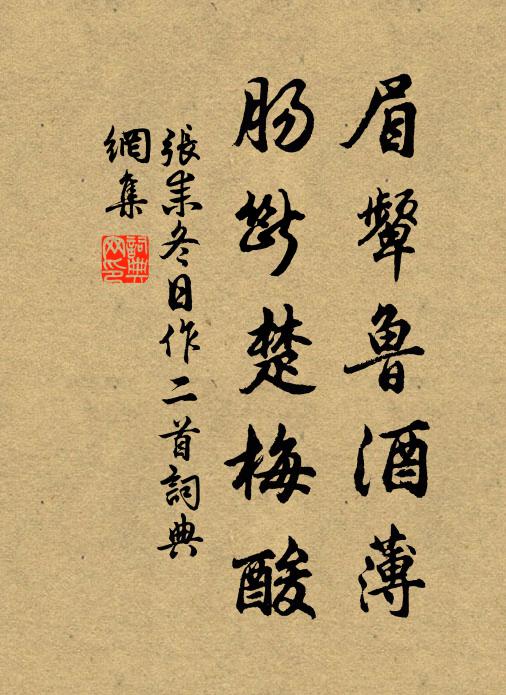 眉颦魯酒薄
肠斷楚梅酸
張耒冬日作二首詞典
網集
詞典
网印